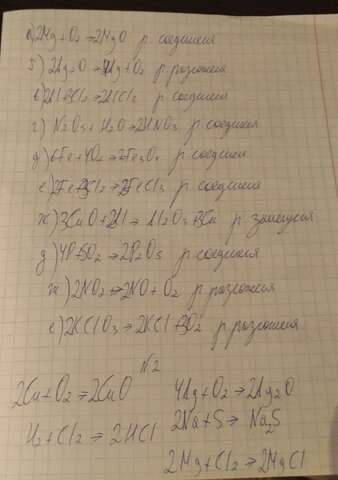 а) 2Mg + O₂ → 2MgO р. соединения
б) 2Ag₂O → 4Ag + O₂ р. разложения
в) 2Al + 3Cl₂ → 2AlCl₃ р. соединения
г) N₂O₅ + H₂O → 2HNO₃ р. соединения
д) 6Fe + 4O₂ → 2Fe₃O₄ р. соединения
е) 2Fe + 3Cl₂ → 2FeCl₃ р. соединения
ж) 3CuO + 2Al → Al₂O₃ + 3Cu р. замещения
д) 4P + 5O₂ → 2P₂O₅ р. соединения
ж) 2NO₂ → 2NO + O₂ р. разложения
е) 2KClO₃ → 2KCl + 3O₂ р. разложения
N2
2Cu + O₂ → 2CuO
H₂ + Cl₂ → 2HCl
4Ag + O₂ → 2Ag₂O
2Na + S → Na₂S
2Mg + Cl₂ → 2MgCl